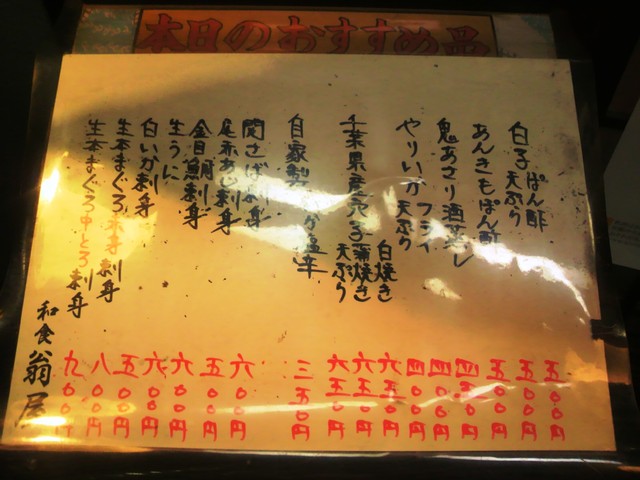 本日のおすすめ品
白子 ぽん酢 五〇〇円
天ぷら 五〇〇円
あんきもぽん酢 五〇〇円
鬼あさり酒蒸し 四五〇円
やりいか フライ 四〇〇円
天ぷら 四〇〇円
千葉県産穴子 白焼き 六五〇円
蒲焼き 六五〇円
天ぷら 六五〇円
自家製いか塩辛 三五〇円
関さば刺身 六〇〇円
尾赤あじ刺身 五〇〇円
金目鯛刺身 六〇〇円
生うに 六〇〇円
白いか刺身 五〇〇円
生本まぐろ赤身刺身 八〇〇円
生本まぐろ中とろ刺身 九〇〇円
和食 翁屋